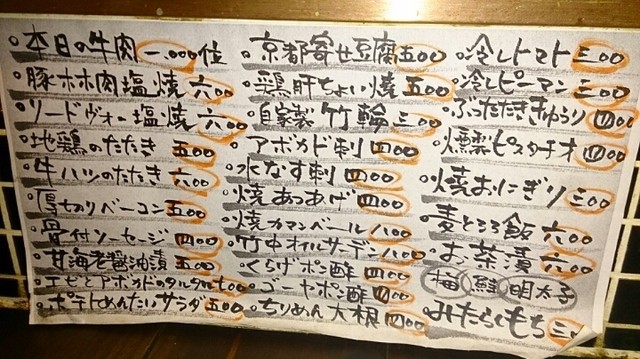 本日の牛肉 一.000位
豚ホホ肉塩焼 六00
リードヴォー塩焼 六00
地鶏のたたき 五00
牛ハツのたたき 六00
厚切りベーコン 五00
骨付ソーセージ 四00
甘海老醤油漬 五00
エビとアボカドのタルタル 七00
ポテトめんたいサラダ 五00
京都寄せ豆腐 五00
鶏肝ちょい焼 五00
自家製竹輪 三00
アボカド刺 四00
水なす刺 四00
焼あつあげ 四00
焼カマンベール 八00
竹中オイルサーデン 八00
くらげポン酢 四00
ゴーヤポン酢 四00
ちりめん大根 四00
冷しトマト 三00
冷しピーマン 三00
ぶったたききゅうり 四00
燻製ピスタチオ 四00
焼おにぎり 三00
麦とろろ飯 六00
お茶漬 六00
梅 鮭 明太子
みたらしもち 三00